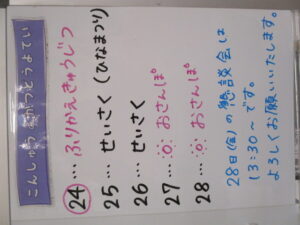 こんしゅうのかつどうよてい
24 … ふりかえきゅうじつ
25 … せいさく (ひなまつり)
26 … せいさく
27 … おさんぽ
28 … おさんぽ
28日(金)の懇談会は
13:30~です。
よろしくお願いいたします。